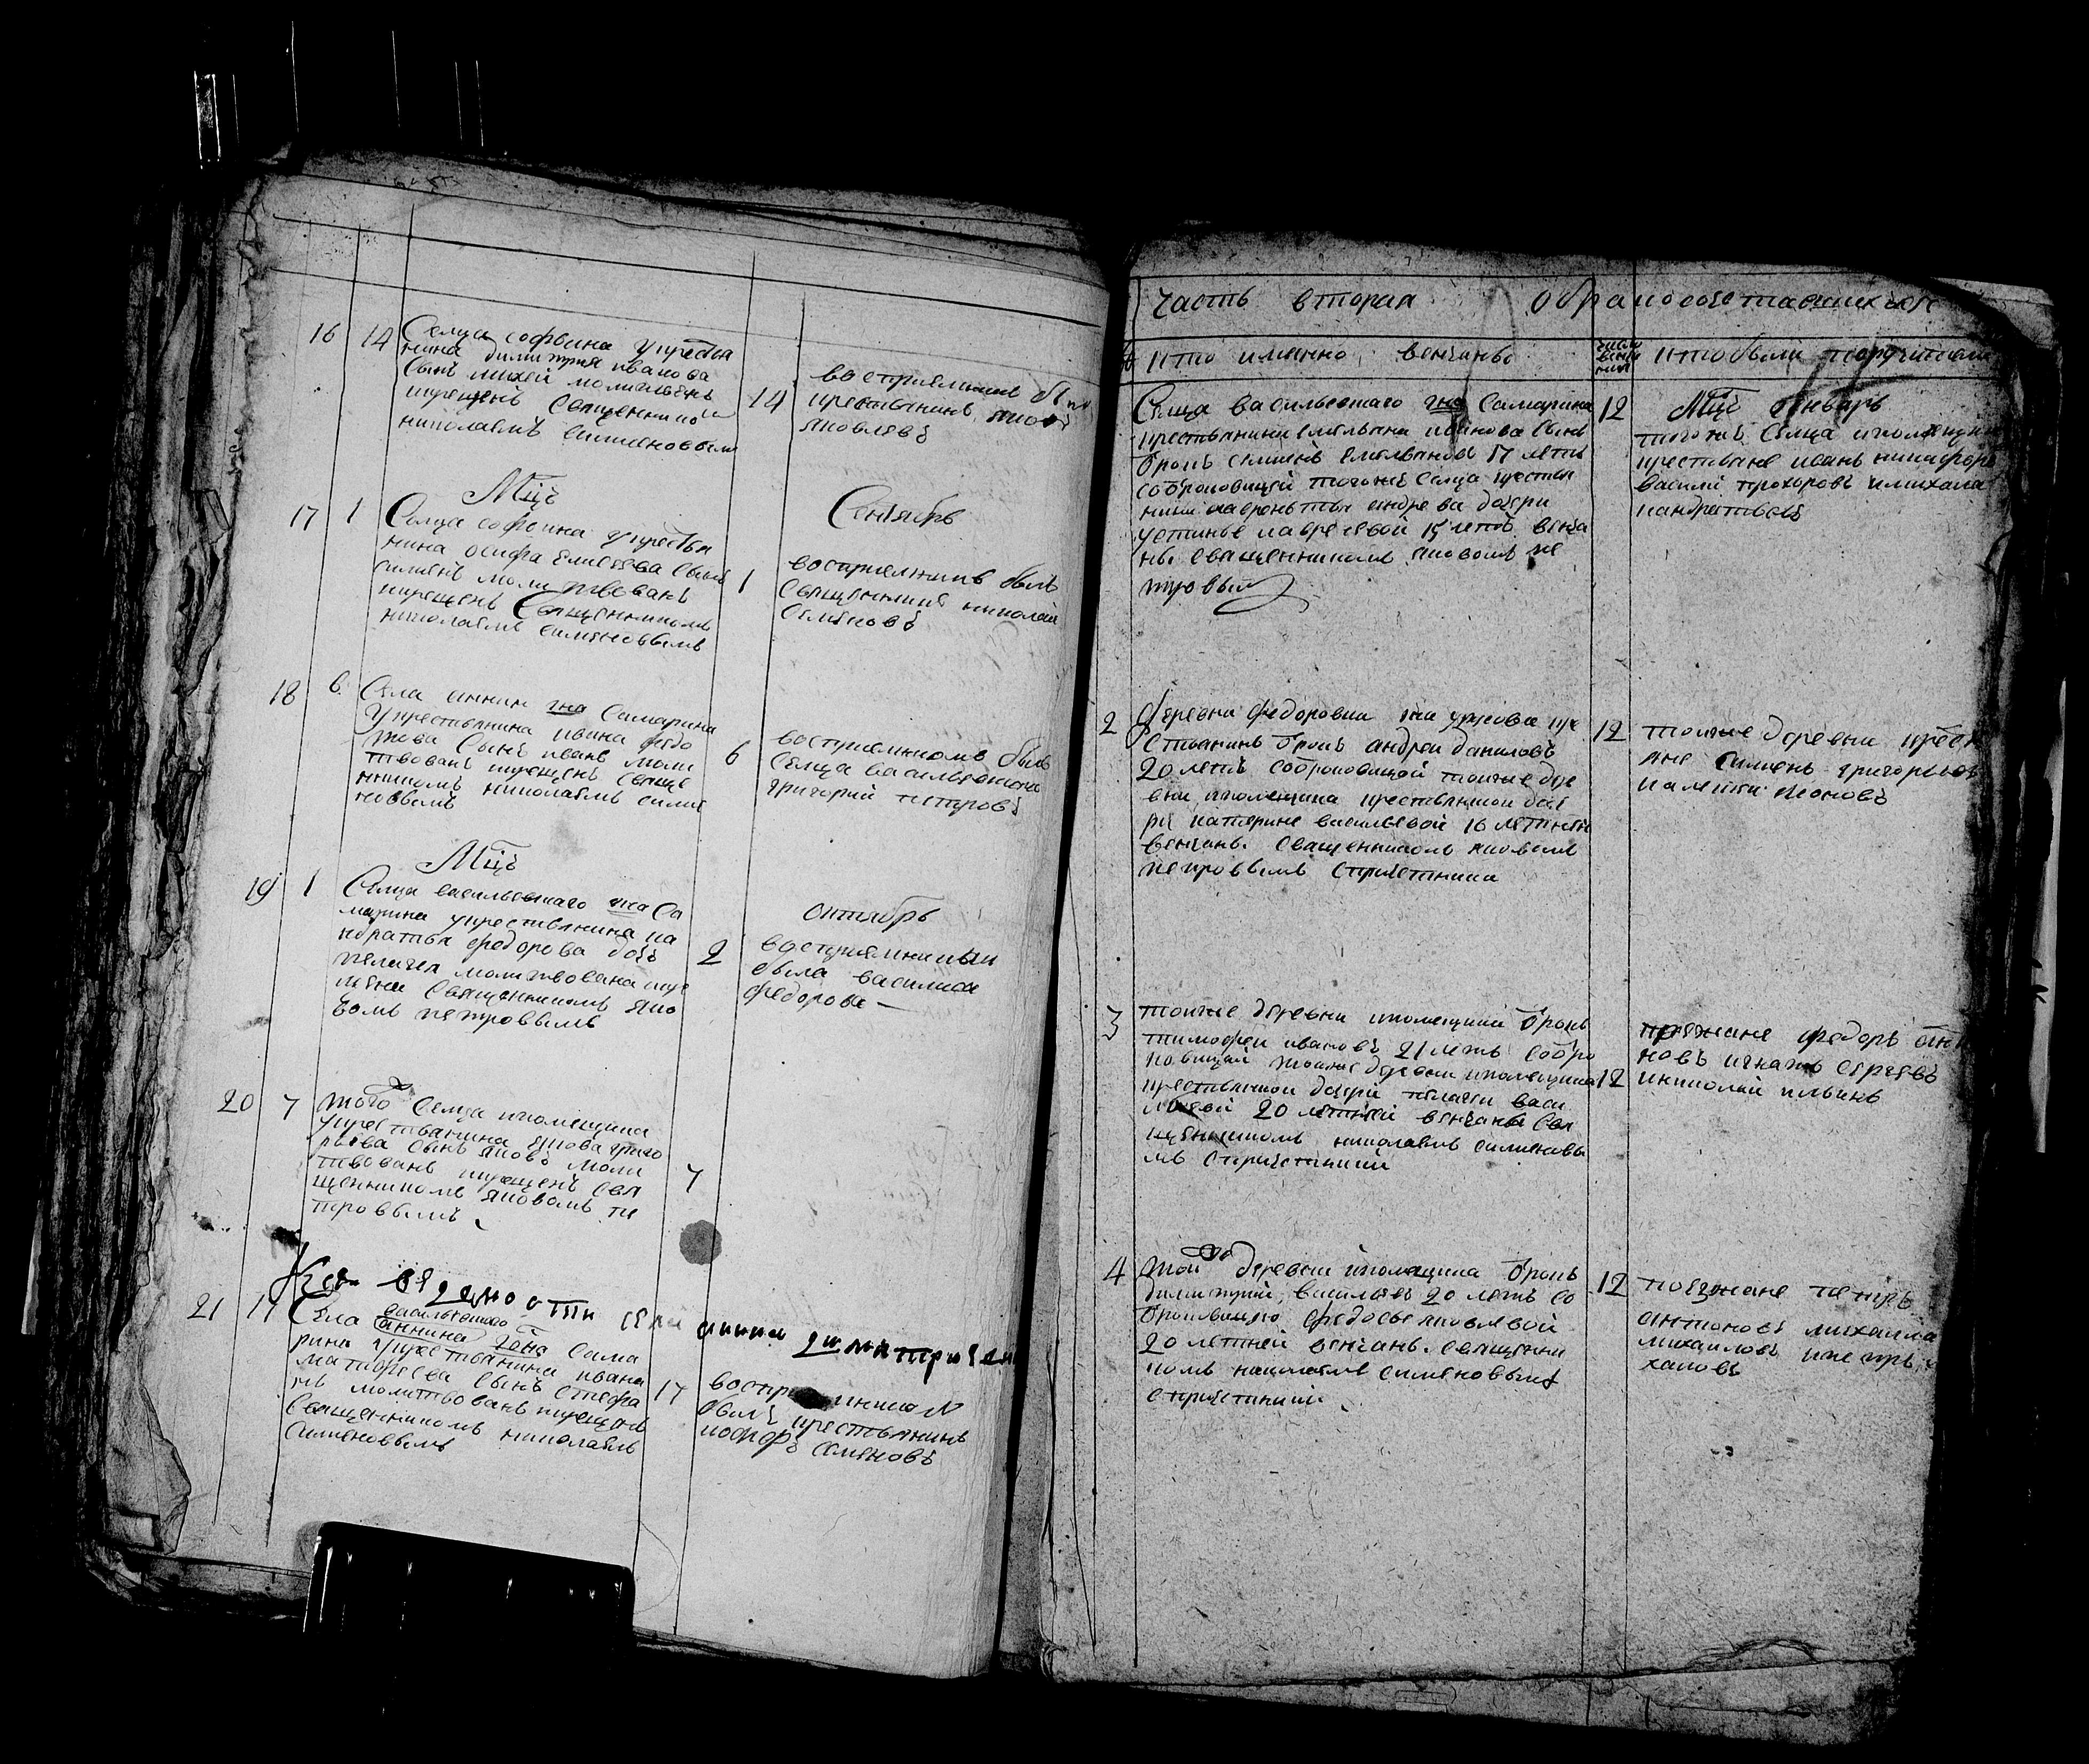 16 14 Селца софьина у крестья
нина димитрия иванова
сынъ михей молитвенъ
и крещенъ священнико
николаемъ симеоновымъ
14 восприемникъ былъ
крестьянинъ
яковлевъ
Мцъ Сентябрь
17 1 Селца софьина у крестья
нина осифа елисеева сынъ
симионъ молитвованъ
и крещенъ священникомъ
николаемъ симеоновымъ
1 восприемникъ былъ
священникъ николай
семеновъ
18 6 Села аннин гна Самарина
у крестьянина ивана федо
това сынъ иванъ моли
твованъ и крещенъ свяще
нникомъ николаемъ симе
новымъ
6 восприемникомъ былъ
селца васильевскаго
григорий петровъ
Мцъ октябрь
19 1 Селца васильевскаго гна Са
марина у крестьянина ко
ндратья федорова дочь
пелагея молитвована и кре
щена священникомъ яко
вомъ петровымъ
2 восприемницы
была василиса
федорова
20 7 того селца и помещика
у крестьянина якова григо
рьева сынъ яковъ моли
твованъ и крещенъ свя
щенникомъ яковомъ пе
тровымъ
7
Къ ведомости села аннин димитрий
21 17 Села васильевскаго
аннина гдна Сама
рина у крестьянина ивана
матфеева сынъ стефа
нъ молитвованъ и крещенъ
священникомъ николаемъ
симеоновымъ
17 восприемникомъ
былъ крестьянинъ
иосифъ семеновъ
Часть вторая о бракосочетавшихся
кто именно венчаны
число венчания
кто были поручители
Мцъ Январь
Селца васильевскаго гна Самарина
крестьянина емельяна иванова сынъ
отрокъ симионъ емельяновъ 17 летъ
со отроковицей тогожъ селца крестья
нина лаврентья андреева дочери
устинье лаврсевой 15 летъ венча
ны священникомъ яковомъ пе
тровым
12 тогожъ селца и помещика
крестьяне иванъ никифоров
василй прохоровъ и михаила
кандратьевъ
2 Деревни федоровки гна ушкова кре
стьянинъ отрокъ андреи даниловъ
20 летъ со отроковицой тойже дере
вни и помещика крестьянской доче
ри катерине васильевой 16 летней
венчаны священникомъ яковомъ
петровымъ с причетники
12 тойже деревни крест
яне симионъ григорьевъ
и алексей ионовъ
3 тойже деревни и помещика отрокъ
тимофеи ивановъ 21 летъ со отро
ковицай тойже деревни и помещика
крестьянской дочерй пелагеи васи
льевой 20 летней венчаны свя
щенникомъ николаемъ симионовы
мъ с причетники
12 поезжане федоръ анто
новъ игнатъ сергевъ
и николай ильинъ
4 той деревни и помещика отрокъ
димитрий васильевъ 20 летъ со
отроковицею федосье яковлевой
20 летней венчаны священни
комъ николаемъ симионовымъ
с причетники
12 поезжане петръ
антоновъ михаила
михаиловъ и петръ
хаповъ